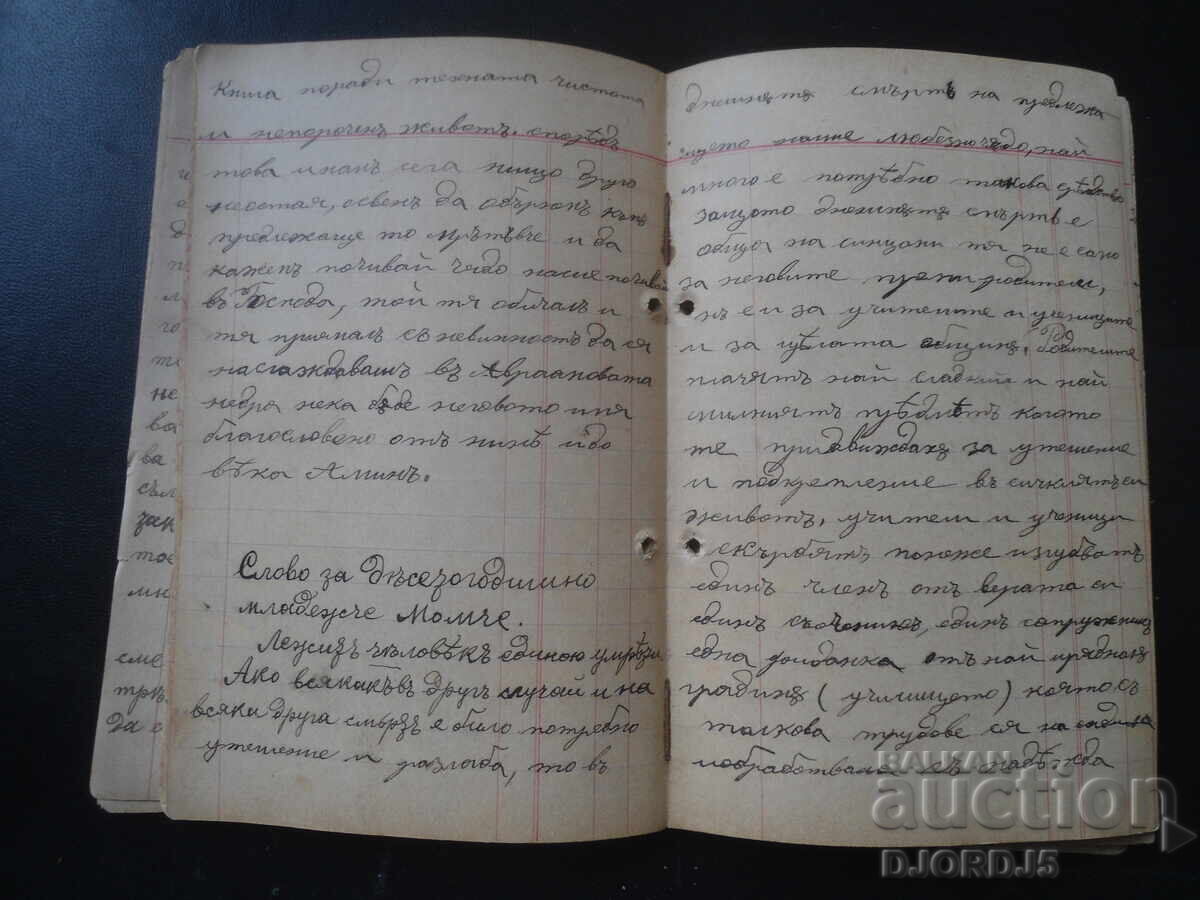 Книга поради техната чистота
и непорочен живот. според
това и нам сега нищо друго
неостая, освен да обърнем към
предлежаще то мрътавче и да
кажем почивай чедо наше почивай
въ Господа, той тя обичал и
тя приемал с невинность да ся
наслаждаваш въ Авраамовата
недра нека бъде неговото имя
благословено отъ нинѣ и до
вѣка Аминъ.
Слово за десетогодишно
младежче Момче.
Лежизъ человѣкъ единою умрѣти
Ако всякакъвъ другъ случай и на
всяка друга смърть е било потребно
утешение и разлоба, то въ
днешната смърть на предлежа
щето наше любезно чедо, най
много е потрѣбно такова
защото днешната смърть е
обща на синцани тя не е само
за неговите родители,
нъ е и за учителите и учениците
и за цѣлата община. Родителите
плачатъ най сладкий и най
милният цвѣтъ когото
те придвиждаха за утешение
и подкрепление въ сичкиятъ си
животъ, учители и ученици
скърбятъ, понеже изгубватъ
единъ членъ отъ верата си
единъ съученикъ, единъ сопружникъ
една фиданка отъ най иряднаѫ
градинѫ (училището) която съ
толкова трудове ся на
и обработвала съ надѣжда
BALKAN
auction
DJORDJ5